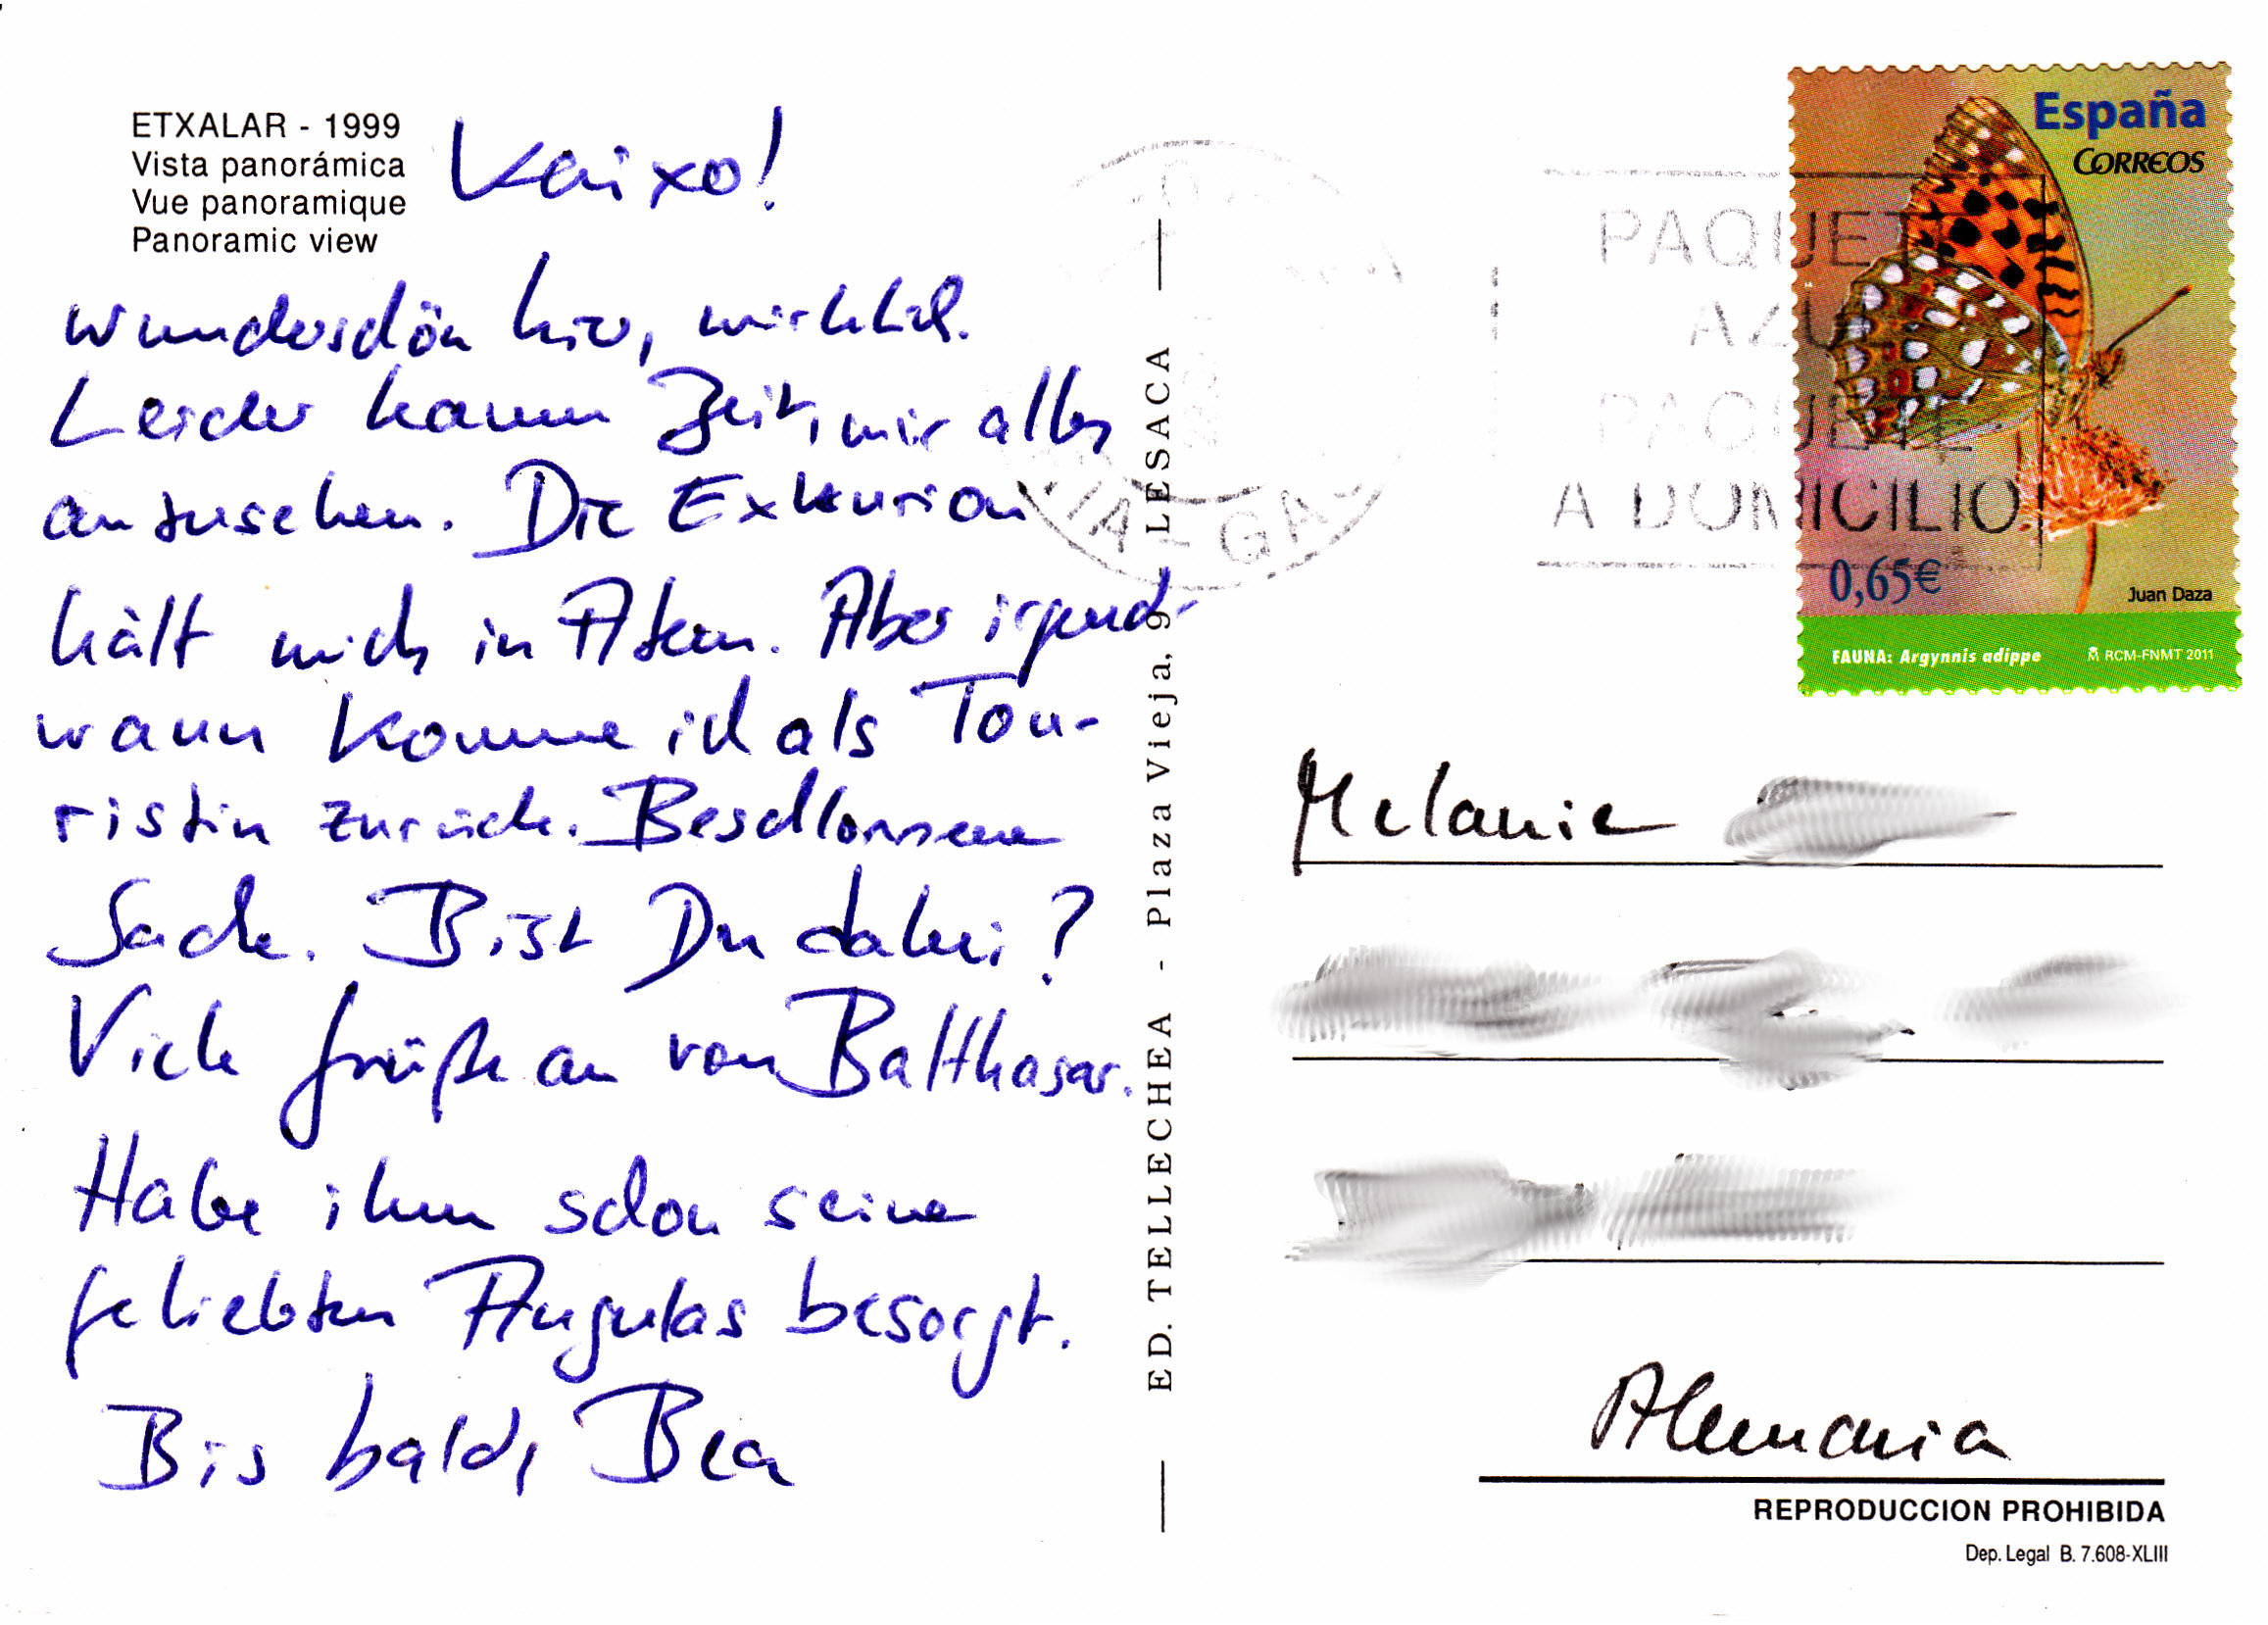 ETXALAR - 1999
Vista panorámica
Vue panoramique
Panoramic view
Kaixo!
wunderschön hier, wirklich.
Leider kaum Zeit, mir alles
anzusehen. Die Exkursion
hält mich in Atem. Aber irgend-
wann komme ich als Tou-
ristin zurück. Beschlossene
Sache. Bist Du dabei?
Viele Grüße an von Balthasar.
Habe ihm schon seine
geliebten Angulas besorgt.
Bis bald, Bea
ED. TELLECHEA - Plaza Vieja, 9 - LESACA
España
CORREOS
0,65€
Juan Daza
FAUNA: Argynnis adippe
RCM-FNMT 2011
PAQUETE
AZUL
PAQUETE
A DOMICILIO
Melanie
Alemania
REPRODUCCION PROHIBIDA
Dep. Legal B. 7.608-XLIII